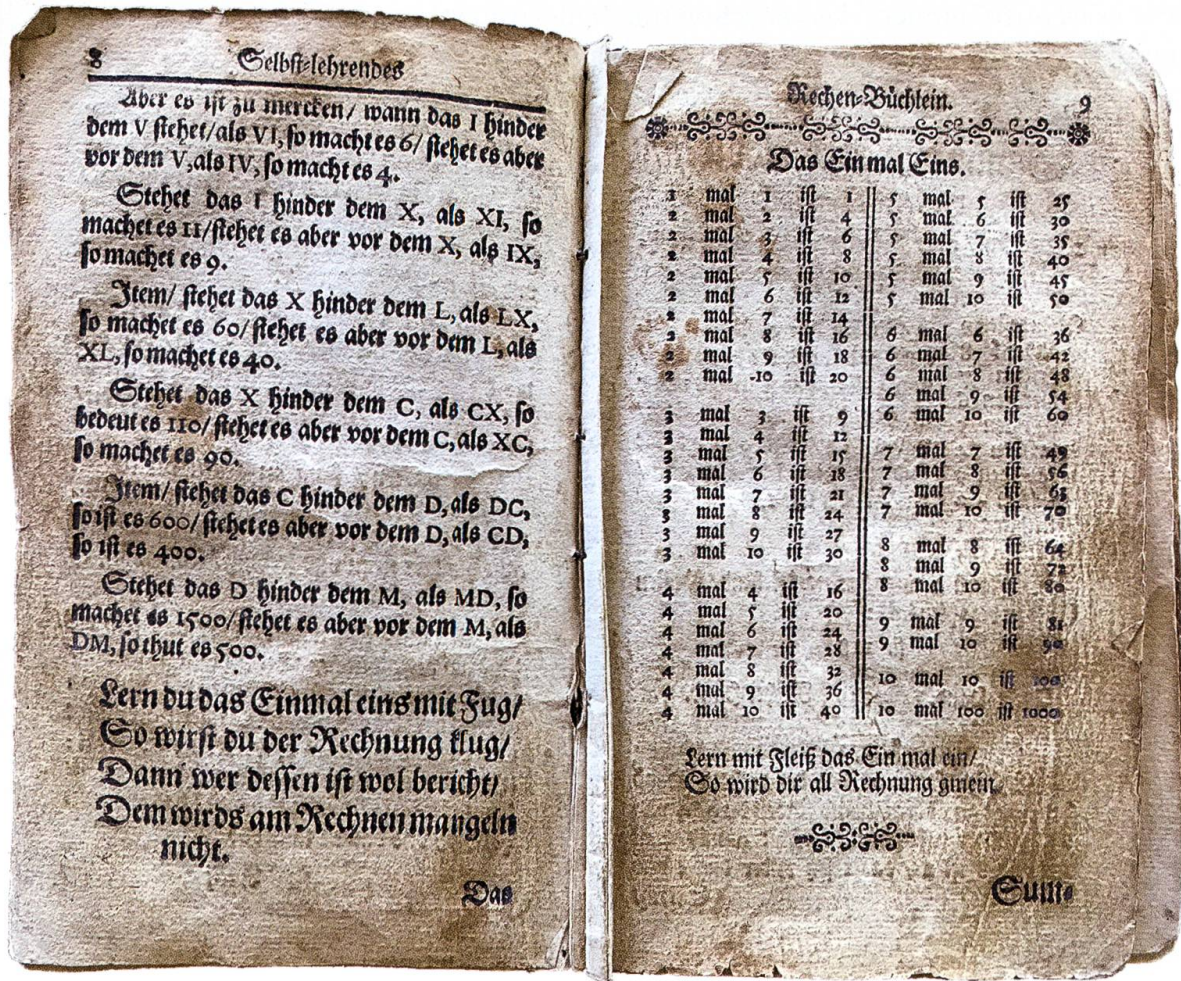 8 Selbst-lehrendes
Aber es ist zu mercken/ wann das I hinder
dem V stehet/als VI, so macht es 6/ stehet es aber
vor dem V,als IV, so macht es 4.
Stehet das I hinder dem X, als XI, so
machet es 11/stehet es aber vor dem X, als IX,
so machet es 9.
Item/ stehet das X hinder dem L, als LX,
so machet es 60/stehet es aber vor dem L, als
XL, so machet es 40.
Stehet das X hinder dem C, als CX, so
bedeut es 110/stehet es aber vor dem C, als XC,
so machet es 90.
Item/ stehet das C hinder dem D, als DC,
so ist es 600/ stehet es aber vor dem D, als CD,
so ist es 400.
Stehet das D hinder dem M, als MD, so
machet es 1500/stehet es aber vor dem M, als
DM, so thut es 500.
Lern du das Einmal eins mit Fug/
So wirst du der Rechnung klug/
Dann wer dessen ist wol bericht/
Dem wirds am Rechnen mangeln
nicht.
Das
Rechen-Büchlein. 9
Das Ein mal Eins.
1 mal 1 ist 1
2 mal 2 ist 4
2 mal 3 ist 6
2 mal 4 ist 8
2 mal 5 ist 10
2 mal 6 ist 12
2 mal 7 ist 14
2 mal 8 ist 16
2 mal 9 ist 18
2 mal 10 ist 20
3 mal 3 ist 9
3 mal 4 ist 12
3 mal 5 ist 15
3 mal 6 ist 18
3 mal 7 ist 21
3 mal 8 ist 24
3 mal 9 ist 27
3 mal 10 ist 30
4 mal 4 ist 16
4 mal 5 ist 20
4 mal 6 ist 24
4 mal 7 ist 28
4 mal 8 ist 32
4 mal 9 ist 36
4 mal 10 ist 40
5 mal 5 ist 25
5 mal 6 ist 30
5 mal 7 ist 35
5 mal 8 ist 40
5 mal 9 ist 45
5 mal 10 ist 50
6 mal 6 ist 36
6 mal 7 ist 42
6 mal 8 ist 48
6 mal 9 ist 54
6 mal 10 ist 60
7 mal 7 ist 49
7 mal 8 ist 56
7 mal 9 ist 63
7 mal 10 ist 70
8 mal 8 ist 64
8 mal 9 ist 72
8 mal 10 ist 80
9 mal 9 ist 81
9 mal 10 ist 90
10 mal 10 ist 100
10 mal 100 ist 1000
Lern mit Fleiß das Ein mal ein/
So wird dir all Rechnung gmein.
Sum-